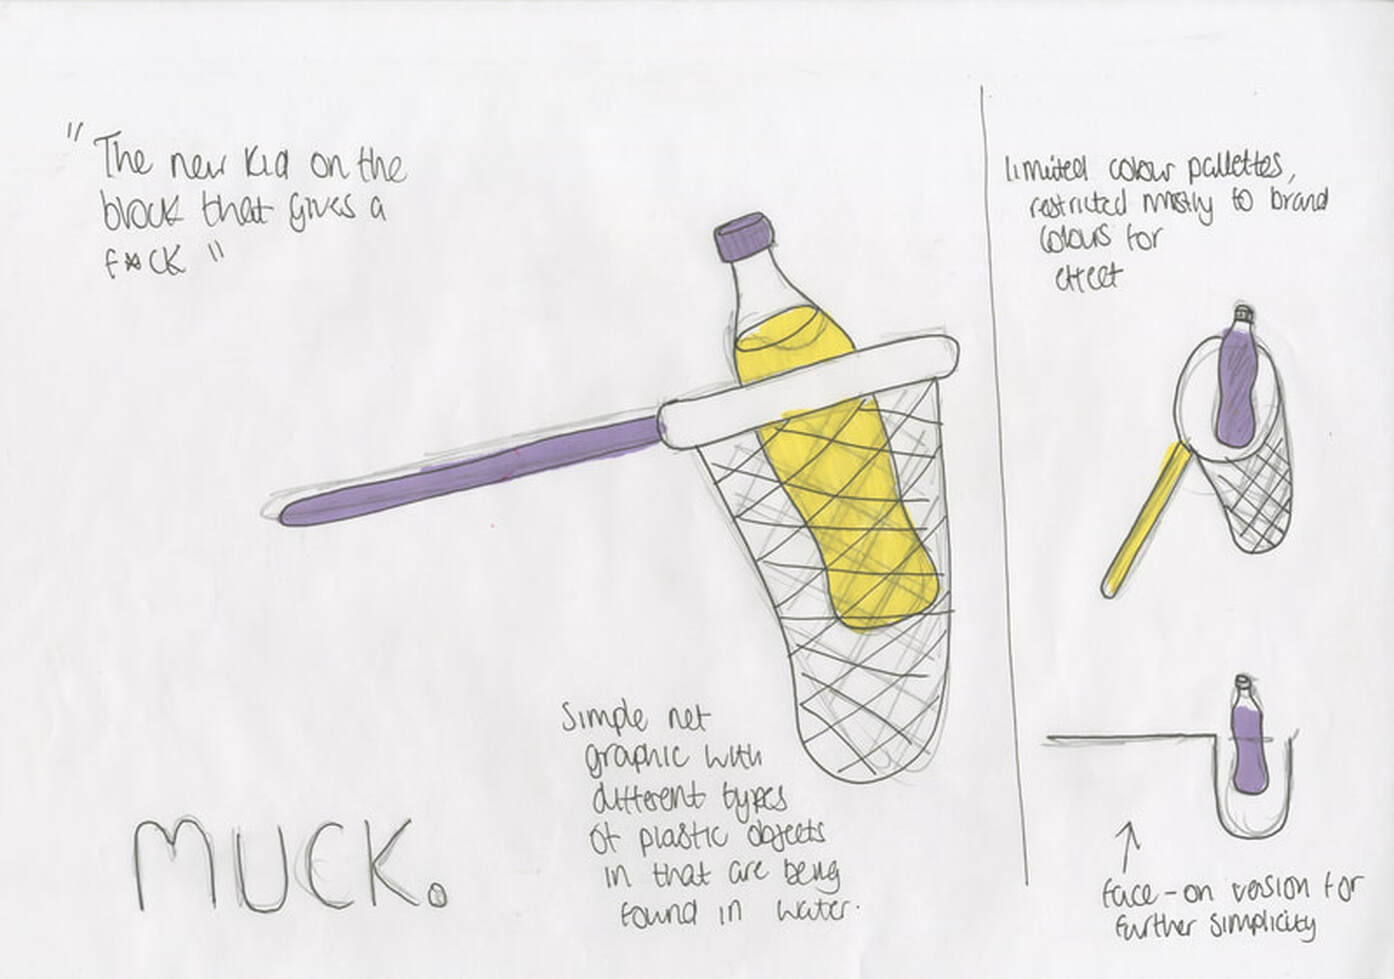 "The new kid on the
block that gives a
f*ck"
MUCK.
Simple net
graphic with
different types
of plastic objects
in that are being
found in water.
limited colour pallettes,
restricted mostly to brand
colours for
effect
face-on version for
further simplicity